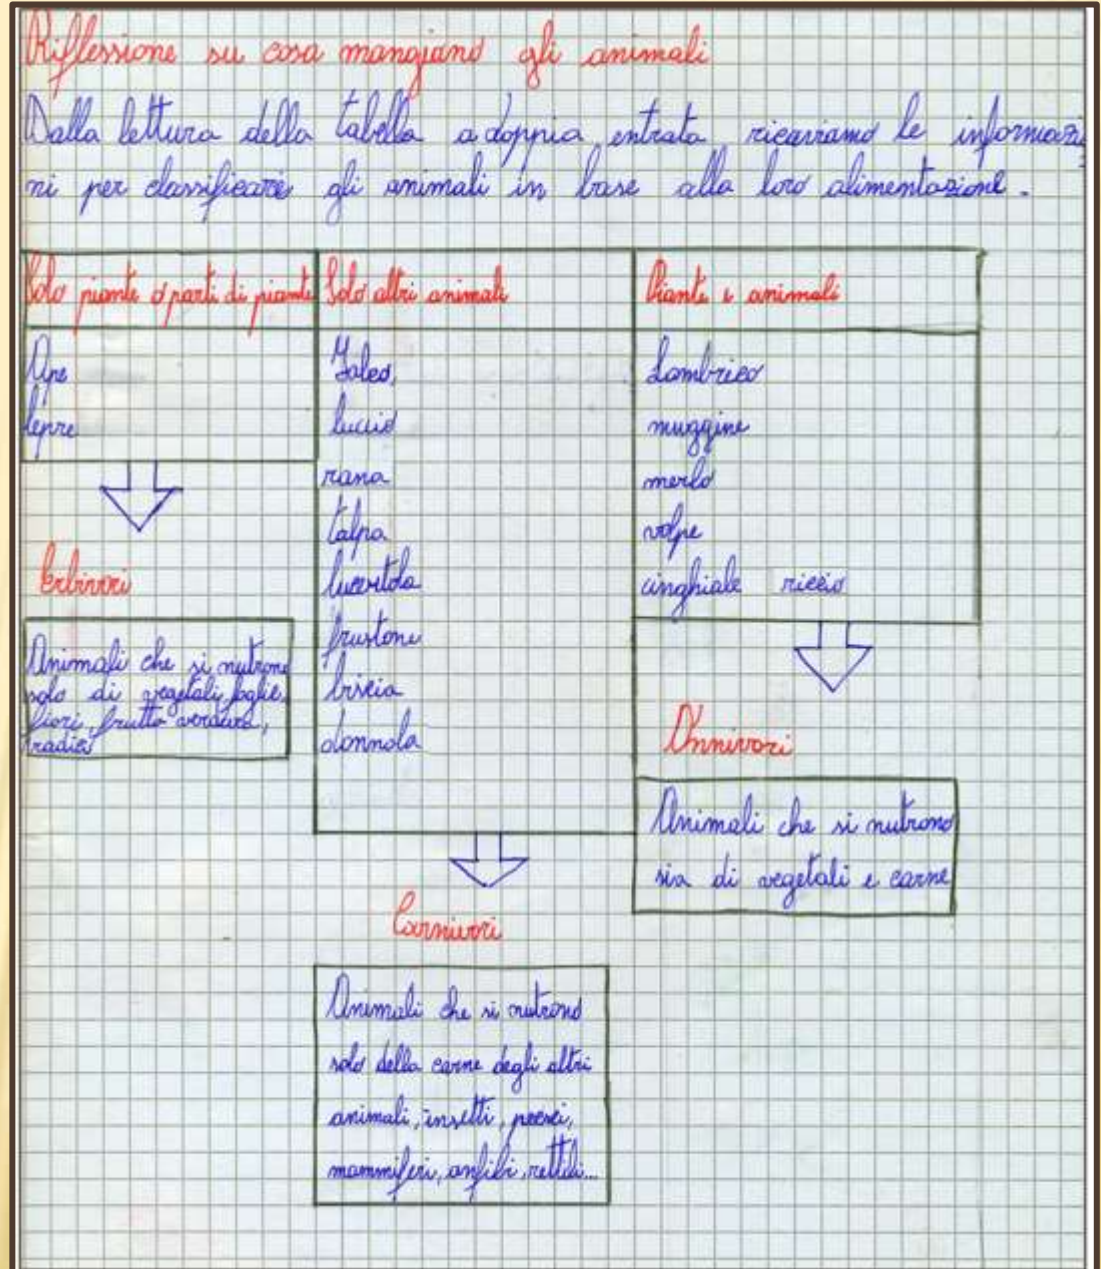 Riflessione su cosa mangiano gli animali
Dalla lettura della tabella a doppia entrata ricaviamo le informazio
ni per classificare gli animali in base alla loro alimentazione.
Solo piante o parti di piante
Ape
lepre
Erbivori
Animali che si nutrono
solo di vegetali, foglie,
fiori, frutta verdura,
radici
Solo altri animali
luccio
rana
talpa
lucertola
frustone
biscia
donnola
Carnivori
Animali che si nutrono
solo della carne degli altri
animali, insetti, pesci,
mammiferi, anfibi, rettili...
Piante e animali
Lombrico
muggine
merlo
volpe
cinghiale riccio
Onnivori
Animali che si nutrono
sia di vegetali e carne